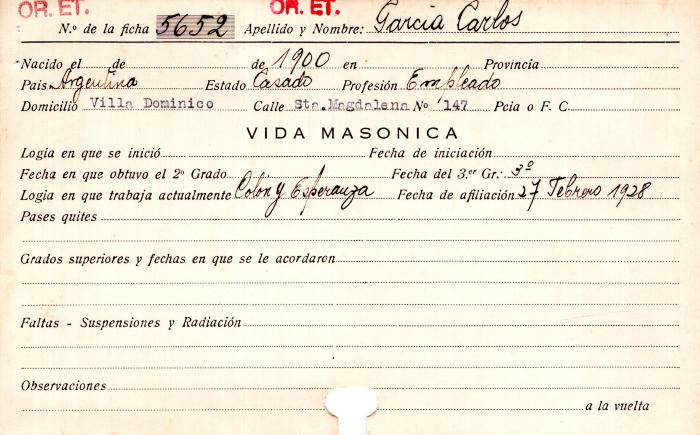 OR. ET. OR. ET.
N.º de la ficha 5652 Apellido y Nombre: Garcia Carlos
Nacido el de de 1900 en Provincia
Pais Argentina Estado Casado Profesión Empleado
Domicilio Villa Dominico Calle Sta.Magdalena Nº 147 Pcia o F. C.
VIDA MASONICA
Logia en que se inició Fecha de iniciación
Fecha en que obtuvo el 2º Grado Fecha del 3.er Gr.: 3º
Logia en que trabaja actualmente Colon y Esperanza Fecha de afiliación 27 Febrero 1928
Pases quites
Grados superiores y fechas en que se le acordaron
Faltas - Suspensiones y Radiación
Observaciones
a la vuelta